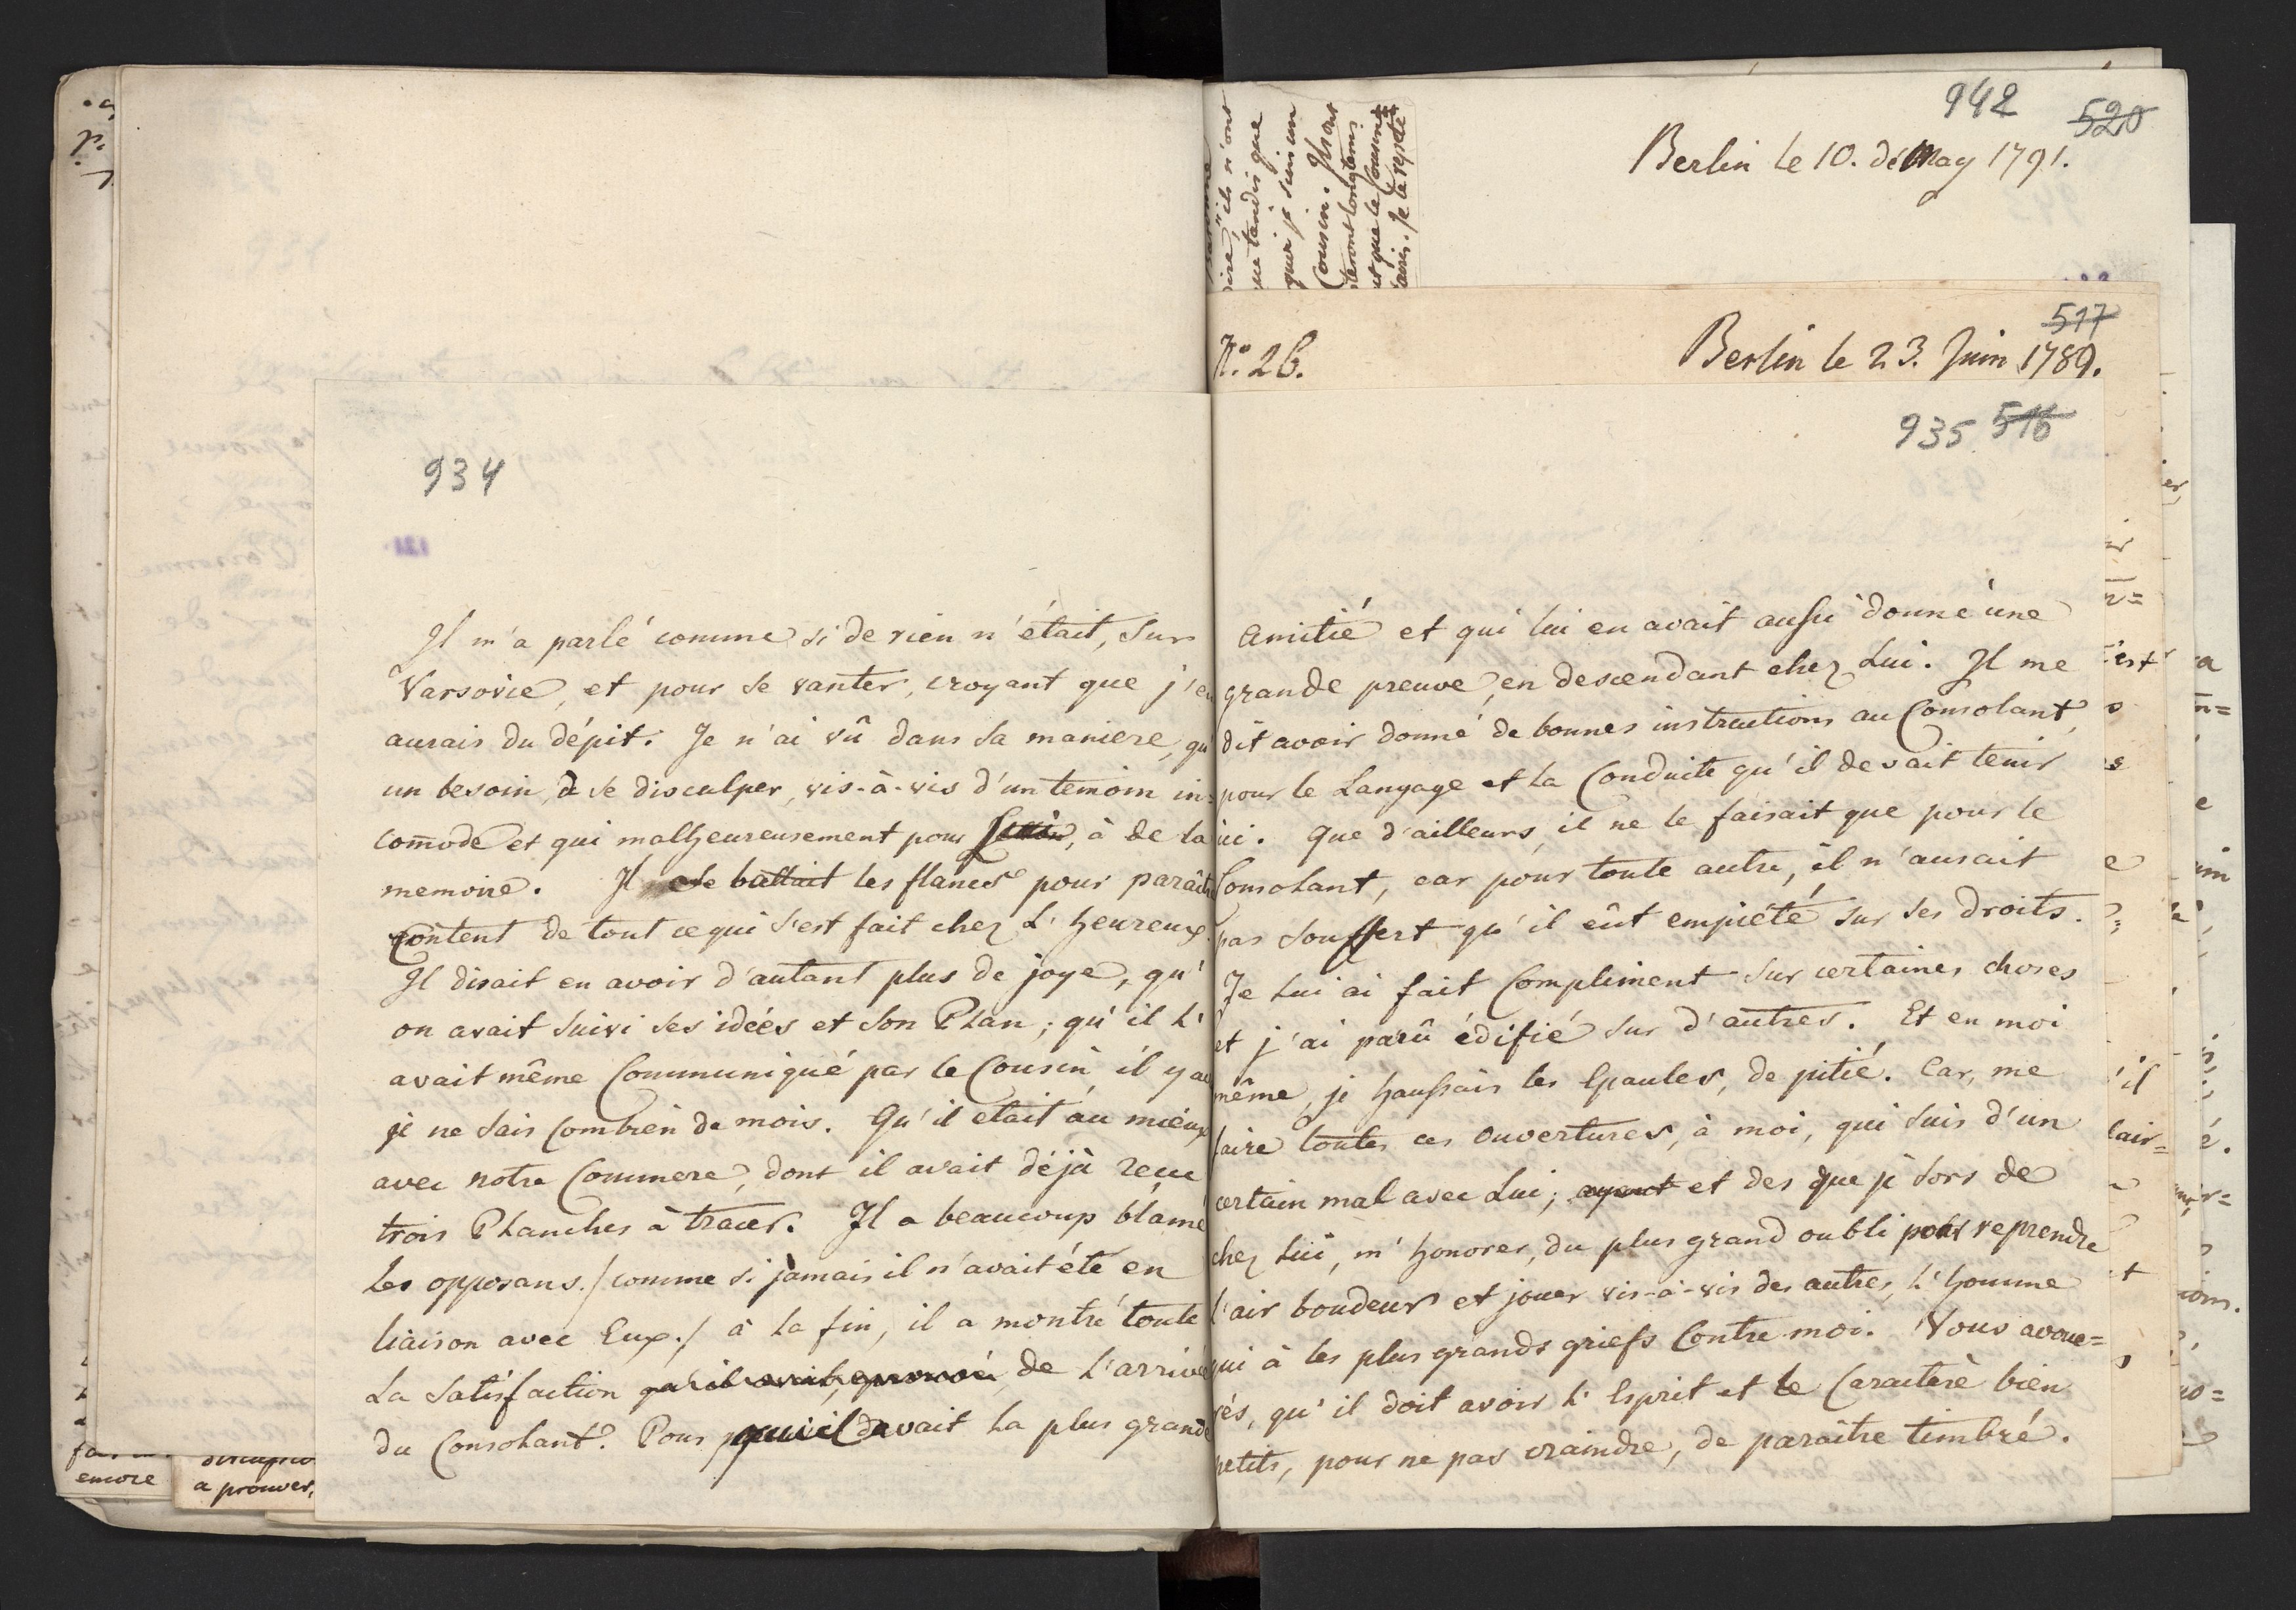 934
Il m'a parlé comme si de rien n'était, Sur
Varsovie, et pour se vanter, croyant que j'en
aurais du dépit. Je n'ai vû dans sa maniere, qu'
un besoin, de se disculper, vis-à-vis d'un temoin in=
com̄ode et qui malheureusement pour, à de la
memoire. Il se battait les flancs pour paraître
Content de tout ce qui s'est fait chez L'heureux.
Il disait en avoir d'autant plus de joye, qu'
on avait suivi ses idées et son Plan; qu'il l'
avait même Communiqué par le Cousin, il y a
je ne sais Combien de mois. Qu'il etait au mieux
avec notre Commere, dont il avait déjà reçu
trois Planches à tracer. Il a beaucoup blamé
les opposans./comme si jamais il n'avait été en
liaison avec Eux./ à la fin, il a montré toute
la Satisfaction de l'arrivée
du Consolant. Pour qui il avait la plus grande
942 520
Berlin le 10. de May 1791.
ils n'ont
tandis que
je suis un
Cousin. Ils ont
longtems
que le Commere
Je le repete
517
No. 26. Berlin le 23. Juin 1789.
935 516
Amitié et qui lui en avait aussi donné une
grande preuve, en descendant chez Lui. Il me
dit avoir donné de bonnes instructions au Consolant,
pour le Langage et la Conduite qu'il devait tenir
ici. Que d'ailleurs, il ne le faisait que pour le
Consolant, car pour toute autre, il n'aurait
pas souffert qu'il eût empiété sur ses droits.
Je Lui ai fait Compliment sur certaines choses
et j'ai parû édifié sur d'autres. Et en moi
même, je haussais les Epaules, de pitié. Car, me
faire toutes ces Ouvertures, à moi, qui suis d'un
certain mal avec Lui; ayant et des que je sors de
chez Lui, m'honorer, du plus grand oubli pour reprendre
l'air boudeur et jouer vis-à-vis des autres, l'homme
qui à les plus grands griefs Contre moi. Vous avoue=
rés, qu'il doit avoir l'Esprit et le Caractère bien
petits, pour ne pas craindre, de paraître timbré.
encore
a prouver,